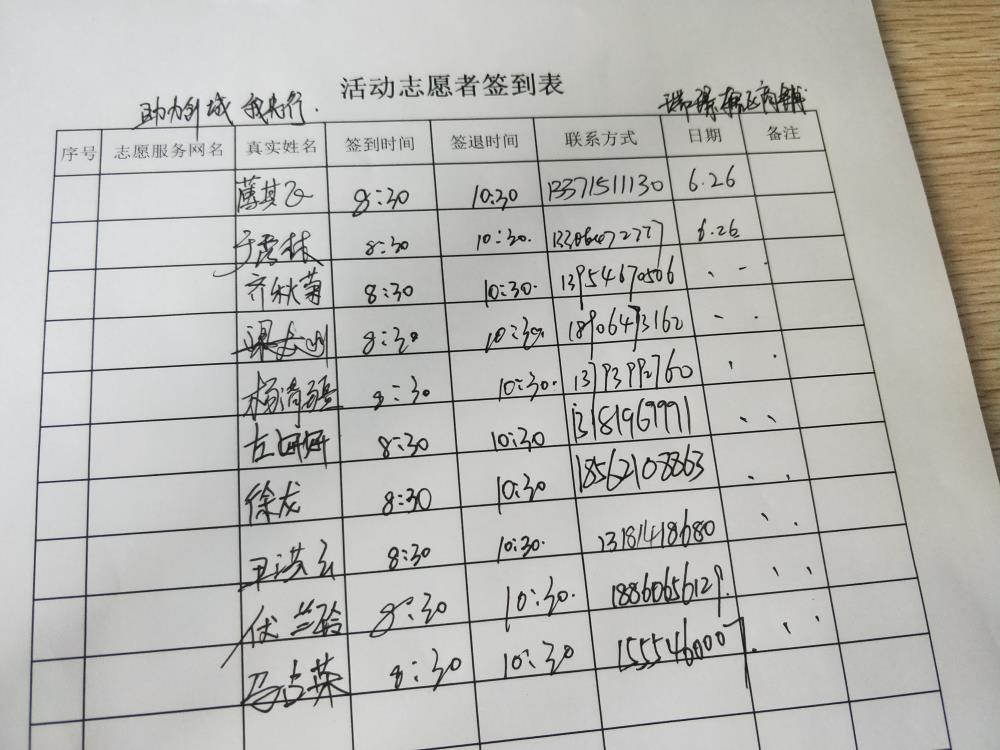 活动志愿者签到表
助力创城 我先行.
序号 志愿服务网名 真实姓名 签到时间 签退时间 联系方式 日期 备注
8:30 10:30 13371511130 6.26
8:30 10:30. 6.26
齐秋菊 8:30 10:30. 13954670506
8:30 10:30. 18906473162
杨清强 8:30 10:30. 13793992760
古妍妍 8:30 10:30
徐龙 8:30 10:30 18562108863
8:30 10:30. 13181418680
伏兰玲 8:30 10:30. 18860656129.
马占英 8:30 10:30 1555460007.